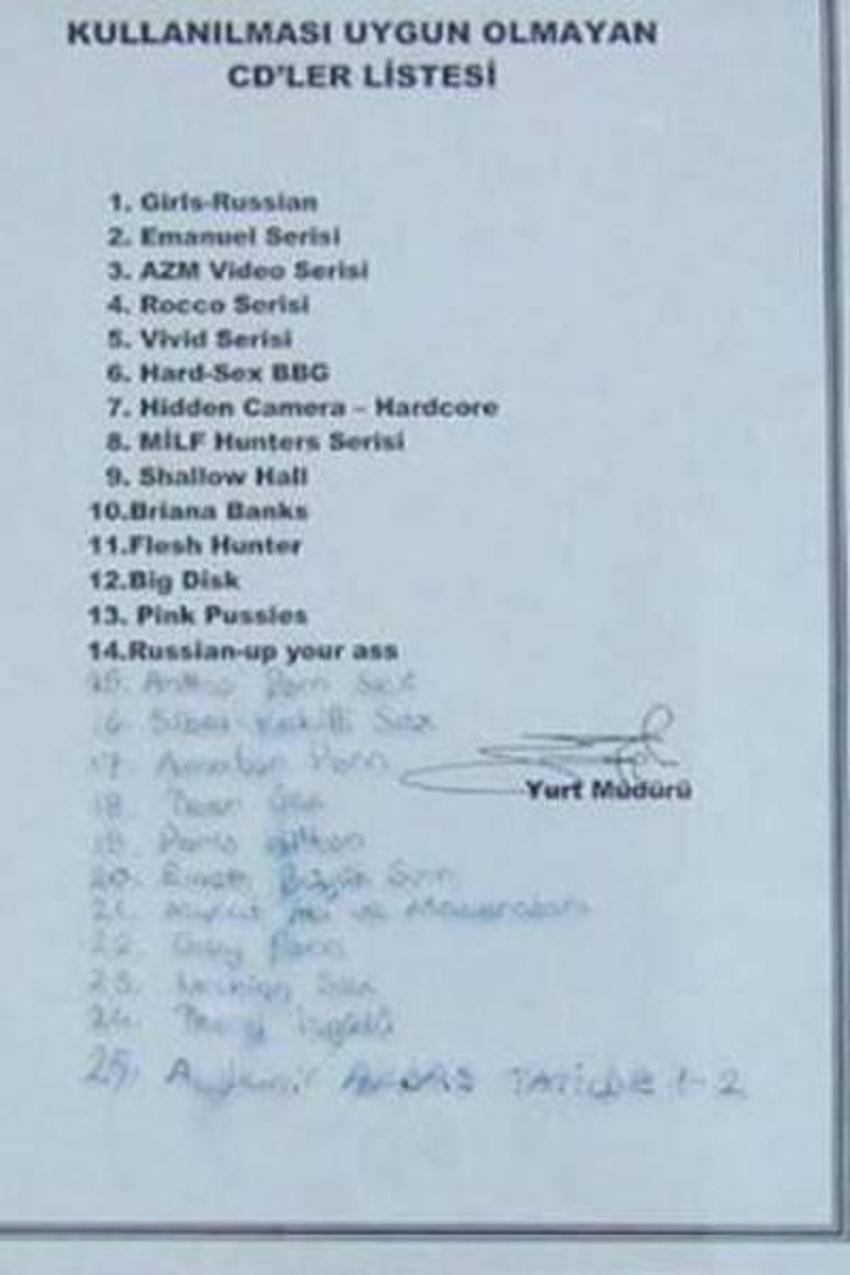 KULLANILMASI UYGUN OLMAYAN
CD'LER LİSTESİ
1. Girls-Russian
2. Emanuel Serisi
3. AZM Video Serisi
4. Rocco Serisi
5. Vivid Serisi
6. Hard-Sex BBG
7. Hidden Camera – Hardcore
8. MİLF Hunters Serisi
9. Shallow Hall
10.Briana Banks
11.Flesh Hunter
12.Big Disk
13. Pink Pussies
14.Russian-up your ass
15. Porn
16. Sibel Kekilli Sex
17. Porn
Yurt Müdürü
18.
19. Paris
20.
21. ve Maceraları
22. Gay Porn
23. Sex
24.
25. TATİLDE 1-2